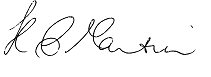 H B Martin